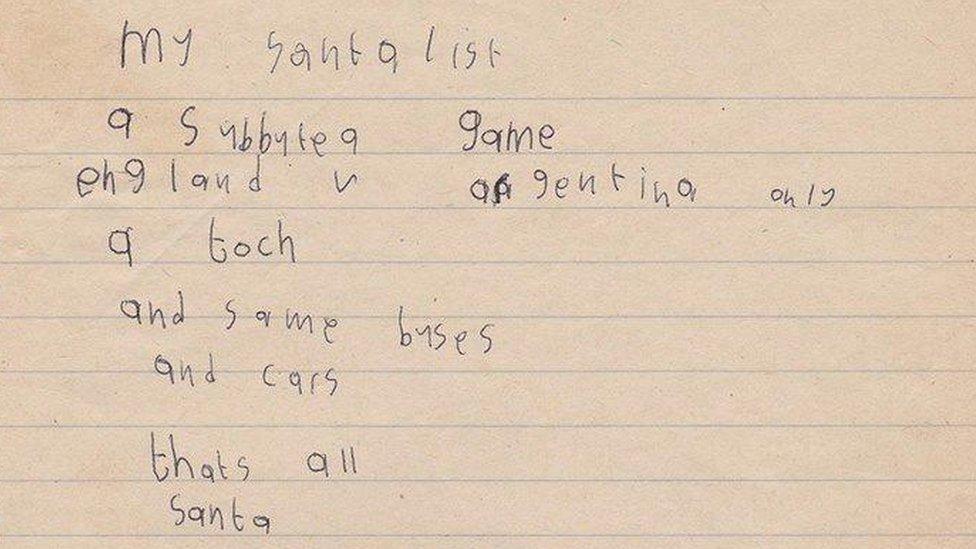 my santa list
a Subbutea game
england v argentina only
a toch
and some buses
and cars
thats all
santa